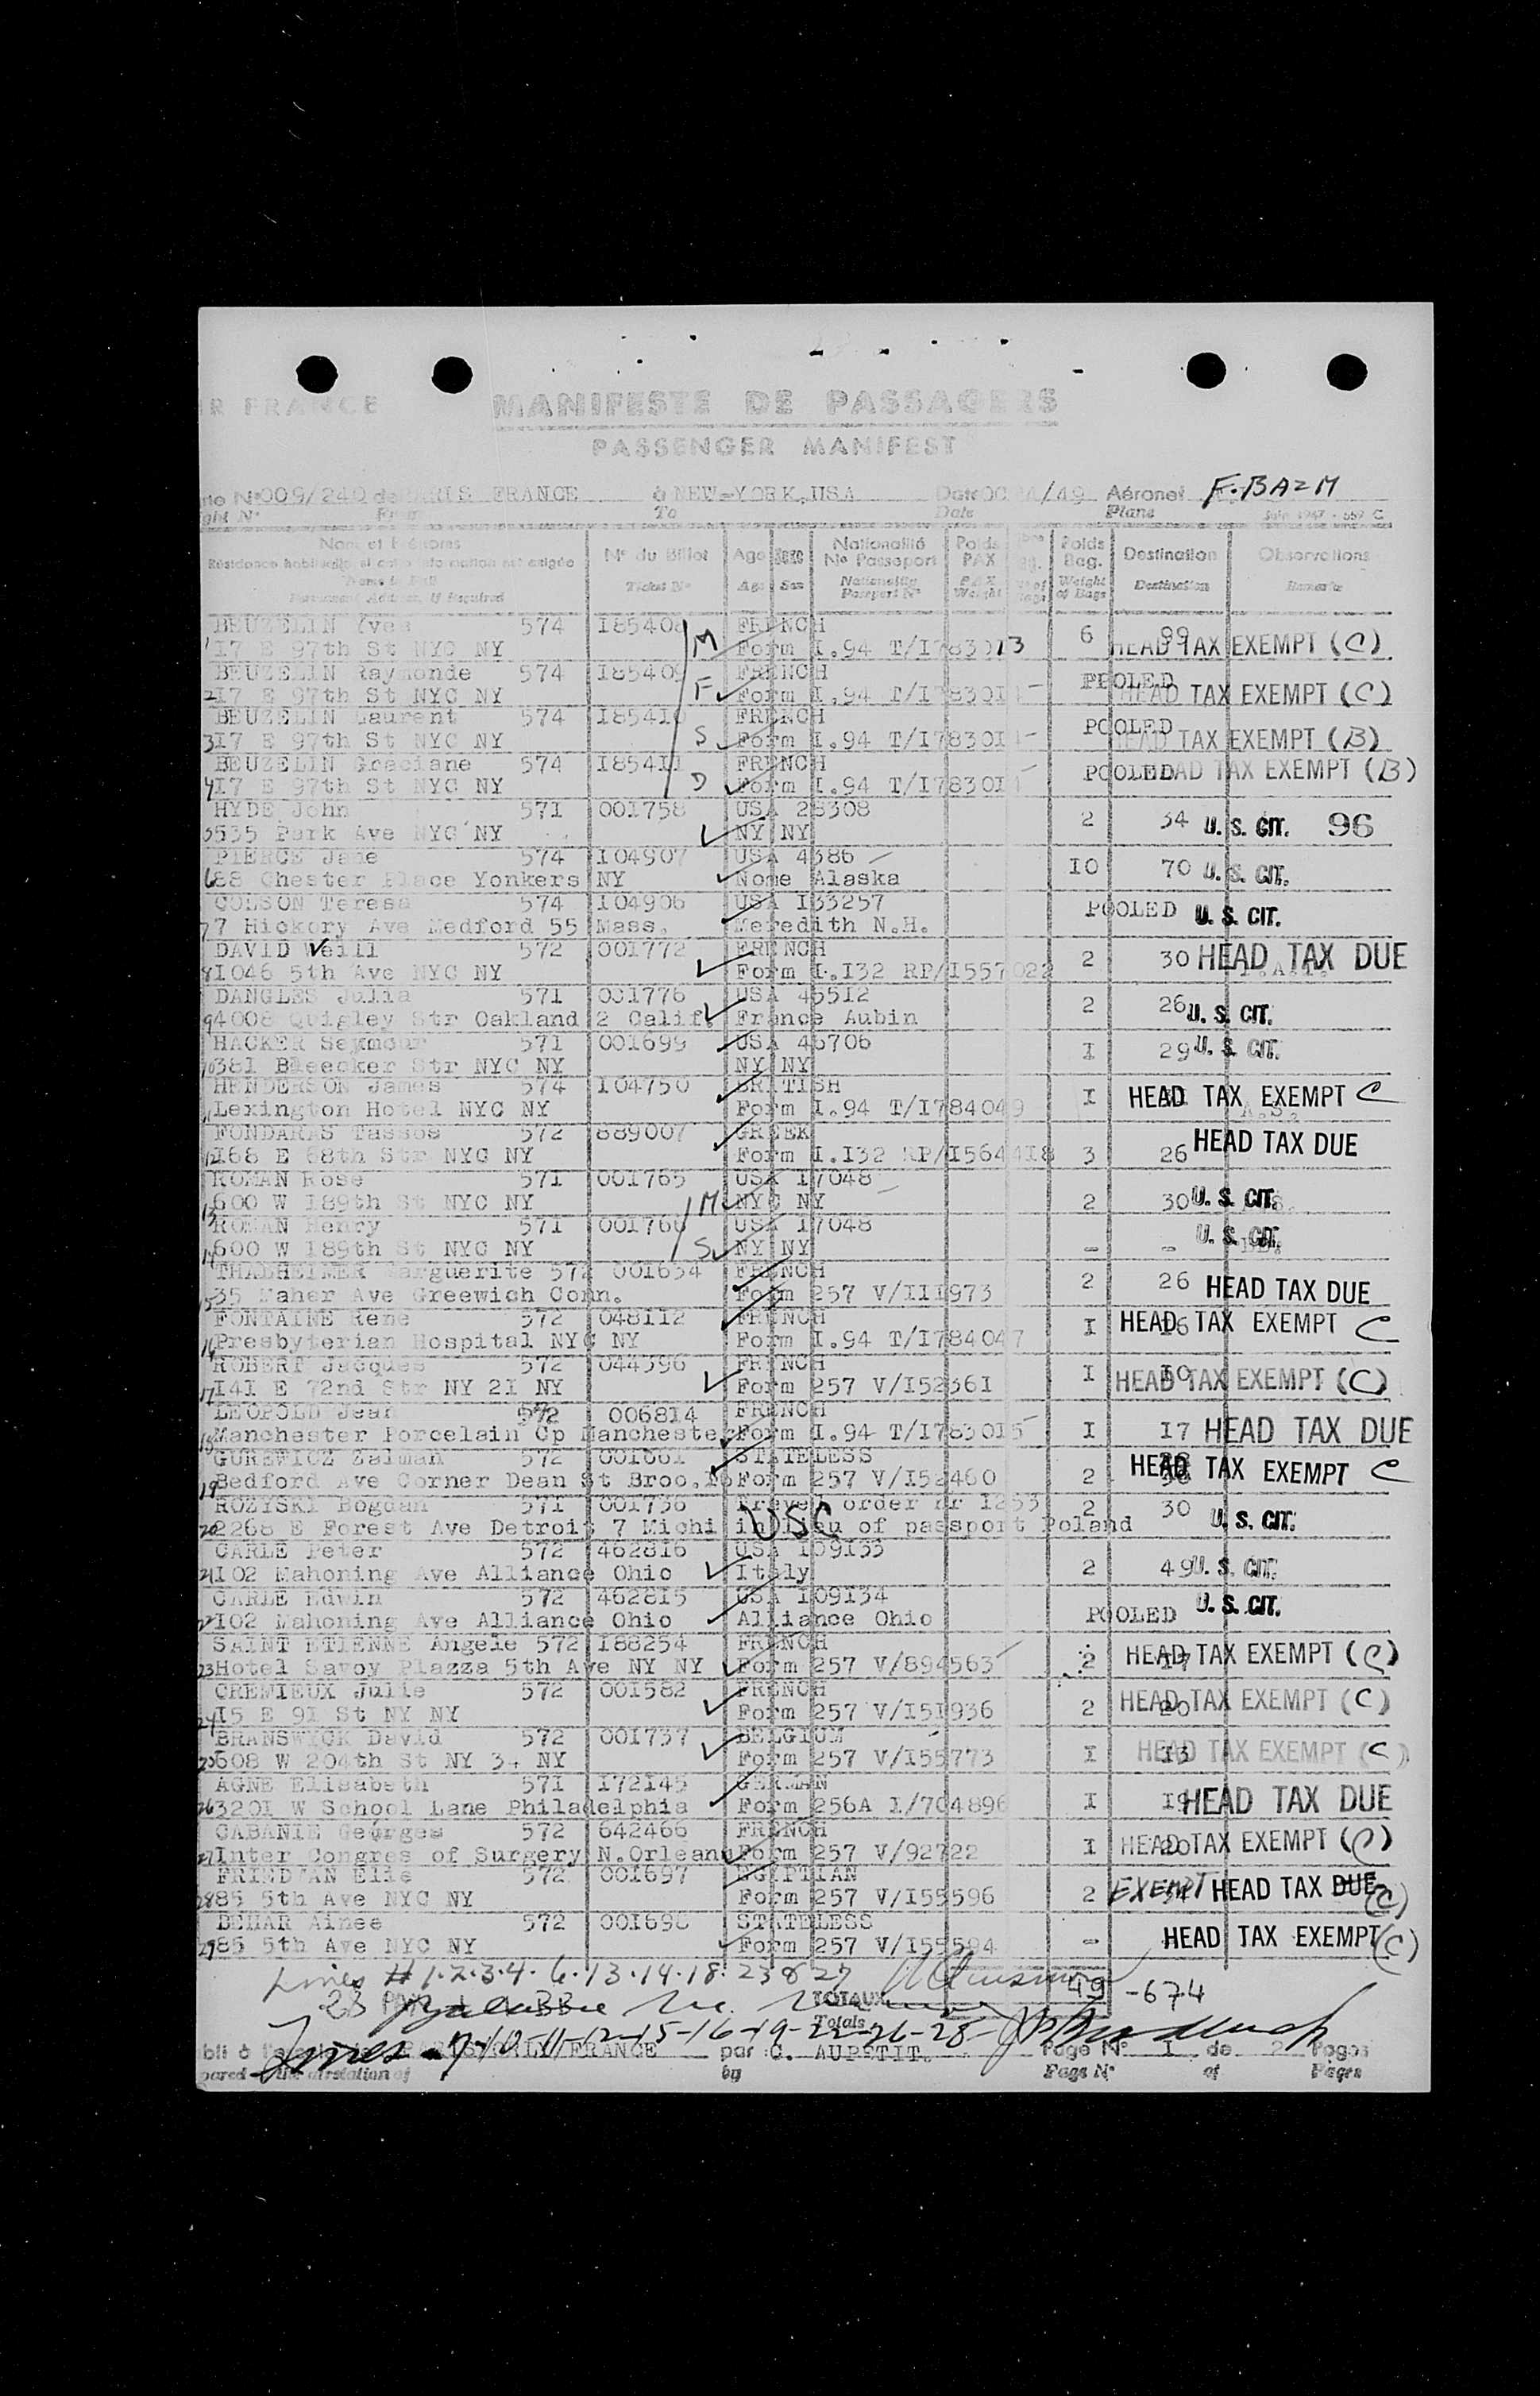 R FRANCE MANIFESTE DE PASSAGERS
PASSENGER MANIFEST
N° 009/240 de PARIS FRANCE à NEW-YORK, USA Date /49 Aéronef F.BAZM
ght N° From To Date Plane
Nom et Prénoms N° du Billet Age Sexe Nationalité N° Passeport Poids PAX Poids Bag. Destination Observations
Ticket N° Age Sex Nationality Passport N° PAX Weight Weight of Bags Destination Remarks
BEUZELIN Yves 574 I85408 M FRENCH 6 99
1 I7 E 97th St NYC NY Form I.94 T/I783013 HEAD TAX EXEMPT (C)
BEUZELIN Raymonde 574 I85409 F FRENCH POOLED
2 I7 E 97th St NYC NY Form I.94 T/I78301 HEAD TAX EXEMPT (C)
BEUZELIN Laurent 574 I85410 S FRENCH POOLED
3 I7 E 97th St NYC NY Form I.94 T/I78301 HEAD TAX EXEMPT (B)
BEUZELIN Graciane 574 I85411 D FRENCH POOLED HEAD TAX EXEMPT (B)
4 I7 E 97th St NYC NY Form I.94 T/I78301
HYDE John 571 001758 USA 28308 2 34 U. S. CIT. 96
5 535 Park Ave NYC NY NY NY
PIERCE Jane 574 I04907 USA 4386 I0 70 U. S. CIT.
6 88 Chester Place Yonkers NY Nome Alaska
COLSON Teresa 574 I04906 USA I33257 POOLED U. S. CIT.
7 7 Hickory Ave Medford 55 Mass. Meredith N.H.
DAVID Weill 572 001772 FRENCH 2 30 HEAD TAX DUE
8 I046 5th Ave NYC NY Form I.I32 RP/I557022
DANGLES Julia 571 001776 USA 45512 2 26 U. S. CIT.
9 4008 Quigley Str Oakland 2 Calif. France Aubin
HACKER Seymour 571 001699 USA 46706 I 29 U. S. CIT.
10 381 Bleecker Str NYC NY NY NY
HENDERSON James 574 I04750 BRITISH I HEAD TAX EXEMPT C
11 Lexington Hotel NYC NY Form I.94 T/I784049
FONDARAS Tassos 572 889007 GREEK HEAD TAX DUE
12 I68 E 68th Str NYC NY Form I.I32 RP/I564418 3 26
ROMAN Rose 571 001765 USA I7048
13 600 W I89th St NYC NY M NYC NY 2 30 U. S. CIT.
ROMAN Henry 571 001766 USA I7048 U. S. CIT.
14 600 W I89th St NYC NY S NY NY - -
THALHEIMER Marguerite 572 001654 FRENCH 2 26 HEAD TAX DUE
15 35 Maher Ave Greewich Conn. Form 257 V/III973
FONTAINE Rene 572 048112 FRENCH I I6 HEAD TAX EXEMPT C
16 Presbyterian Hospital NYC NY Form I.94 T/I784047
ROBERT Jacques 572 044596 FRENCH I
17 I4I E 72nd Str NY 2I NY Form 257 V/I5236I HEAD TAX EXEMPT (C)
LEOPOLD Jean 572 006814 FRENCH
18 Manchester Porcelain Cp Manchester Form I.94 T/I783015 I I7 HEAD TAX DUE
GUREWICZ Zalman 572 001661 STATELESS
19 Bedford Ave Corner Dean St Broo. Form 257 V/I52460 2 HEAD TAX EXEMPT C
ROZYSKI Bogdan 571 001736 Travel order nr I253 2 30
20 2268 E Forest Ave Detroit 7 Michi in lieu of passport Poland USC U. S. CIT.
CARLE Peter 572 462816 USA I09135
21 I02 Mahoning Ave Alliance Ohio Italy 2 49 U. S. CIT.
CARLE Edwin 572 462815 USA I09134 U. S. CIT.
22 I02 Mahoning Ave Alliance Ohio Alliance Ohio POOLED
SAINT ETIENNE Angele 572 I88254 FRENCH
23 Hotel Savoy Plazza 5th Ave NY NY Form 257 V/894563 2 I7 HEAD TAX EXEMPT (C)
CREMIEUX Julie 572 001582 FRENCH
24 I5 E 9I St NY NY Form 257 V/I5I936 2 20 HEAD TAX EXEMPT (C)
BRANSWYCK David 572 001737 BELGIUM
25 608 W 204th St NY 34 NY Form 257 V/I55773 I I3 HEAD TAX EXEMPT (C)
AGNE Elisabeth 571 I72145 GERMAN
26 3201 W School Lane Philadelphia Form 256A I/704896 I I9 HEAD TAX DUE
CABANIE Georges 572 642466 FRENCH
27 Inter Congres of Surgery N.Orleans Form 257 V/92722 I 20 HEAD TAX EXEMPT (C)
FRIEDMAN Elie 572 001697 EGYPTIAN
28 85 5th Ave NYC NY Form 257 V/I55596 2 EXEMPT HEAD TAX DUE (C)
BEHAR Aimee 572 001698 STATELESS
29 85 5th Ave NYC NY Form 257 V/I55594 - HEAD TAX EXEMPT (C)
Lines # 1.2.3.4. 6.13.14.18.23 & 27
28 PAX BB TOTAUX 49 -674
Totals
Lines 10-11-12-15-16-19-22-26-28-
bli à PARIS/ORLY/FRANCE par C. AUPETIT. Page N° I de 2 Pages
pared by Page N° of Pages